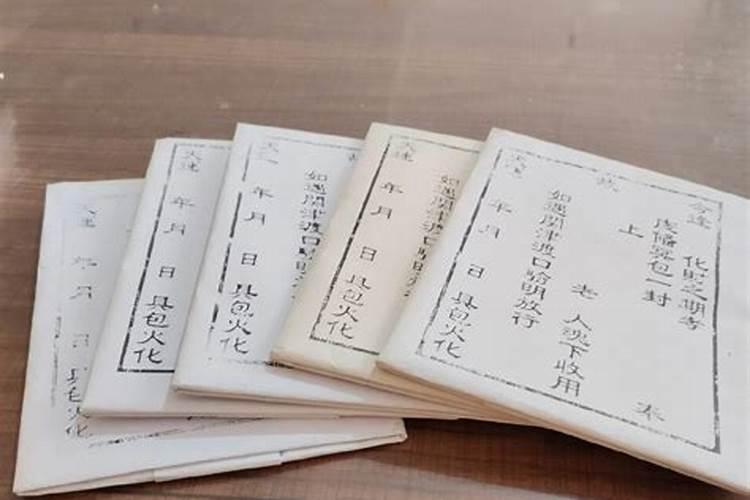 今逢 化財之期孝 奉
虔備冥包一封
上
故 老 人魂下收用
如遇關津渡口驗明放行
天運 年 月 日 具包火化
如遇關津渡口驗明
天運 年 月 日 具包火化
故
如遇關津渡口驗
天運 年 月 日 具包火化
天運 年 月 日 具包火化
天運 年 月 日 具包火化